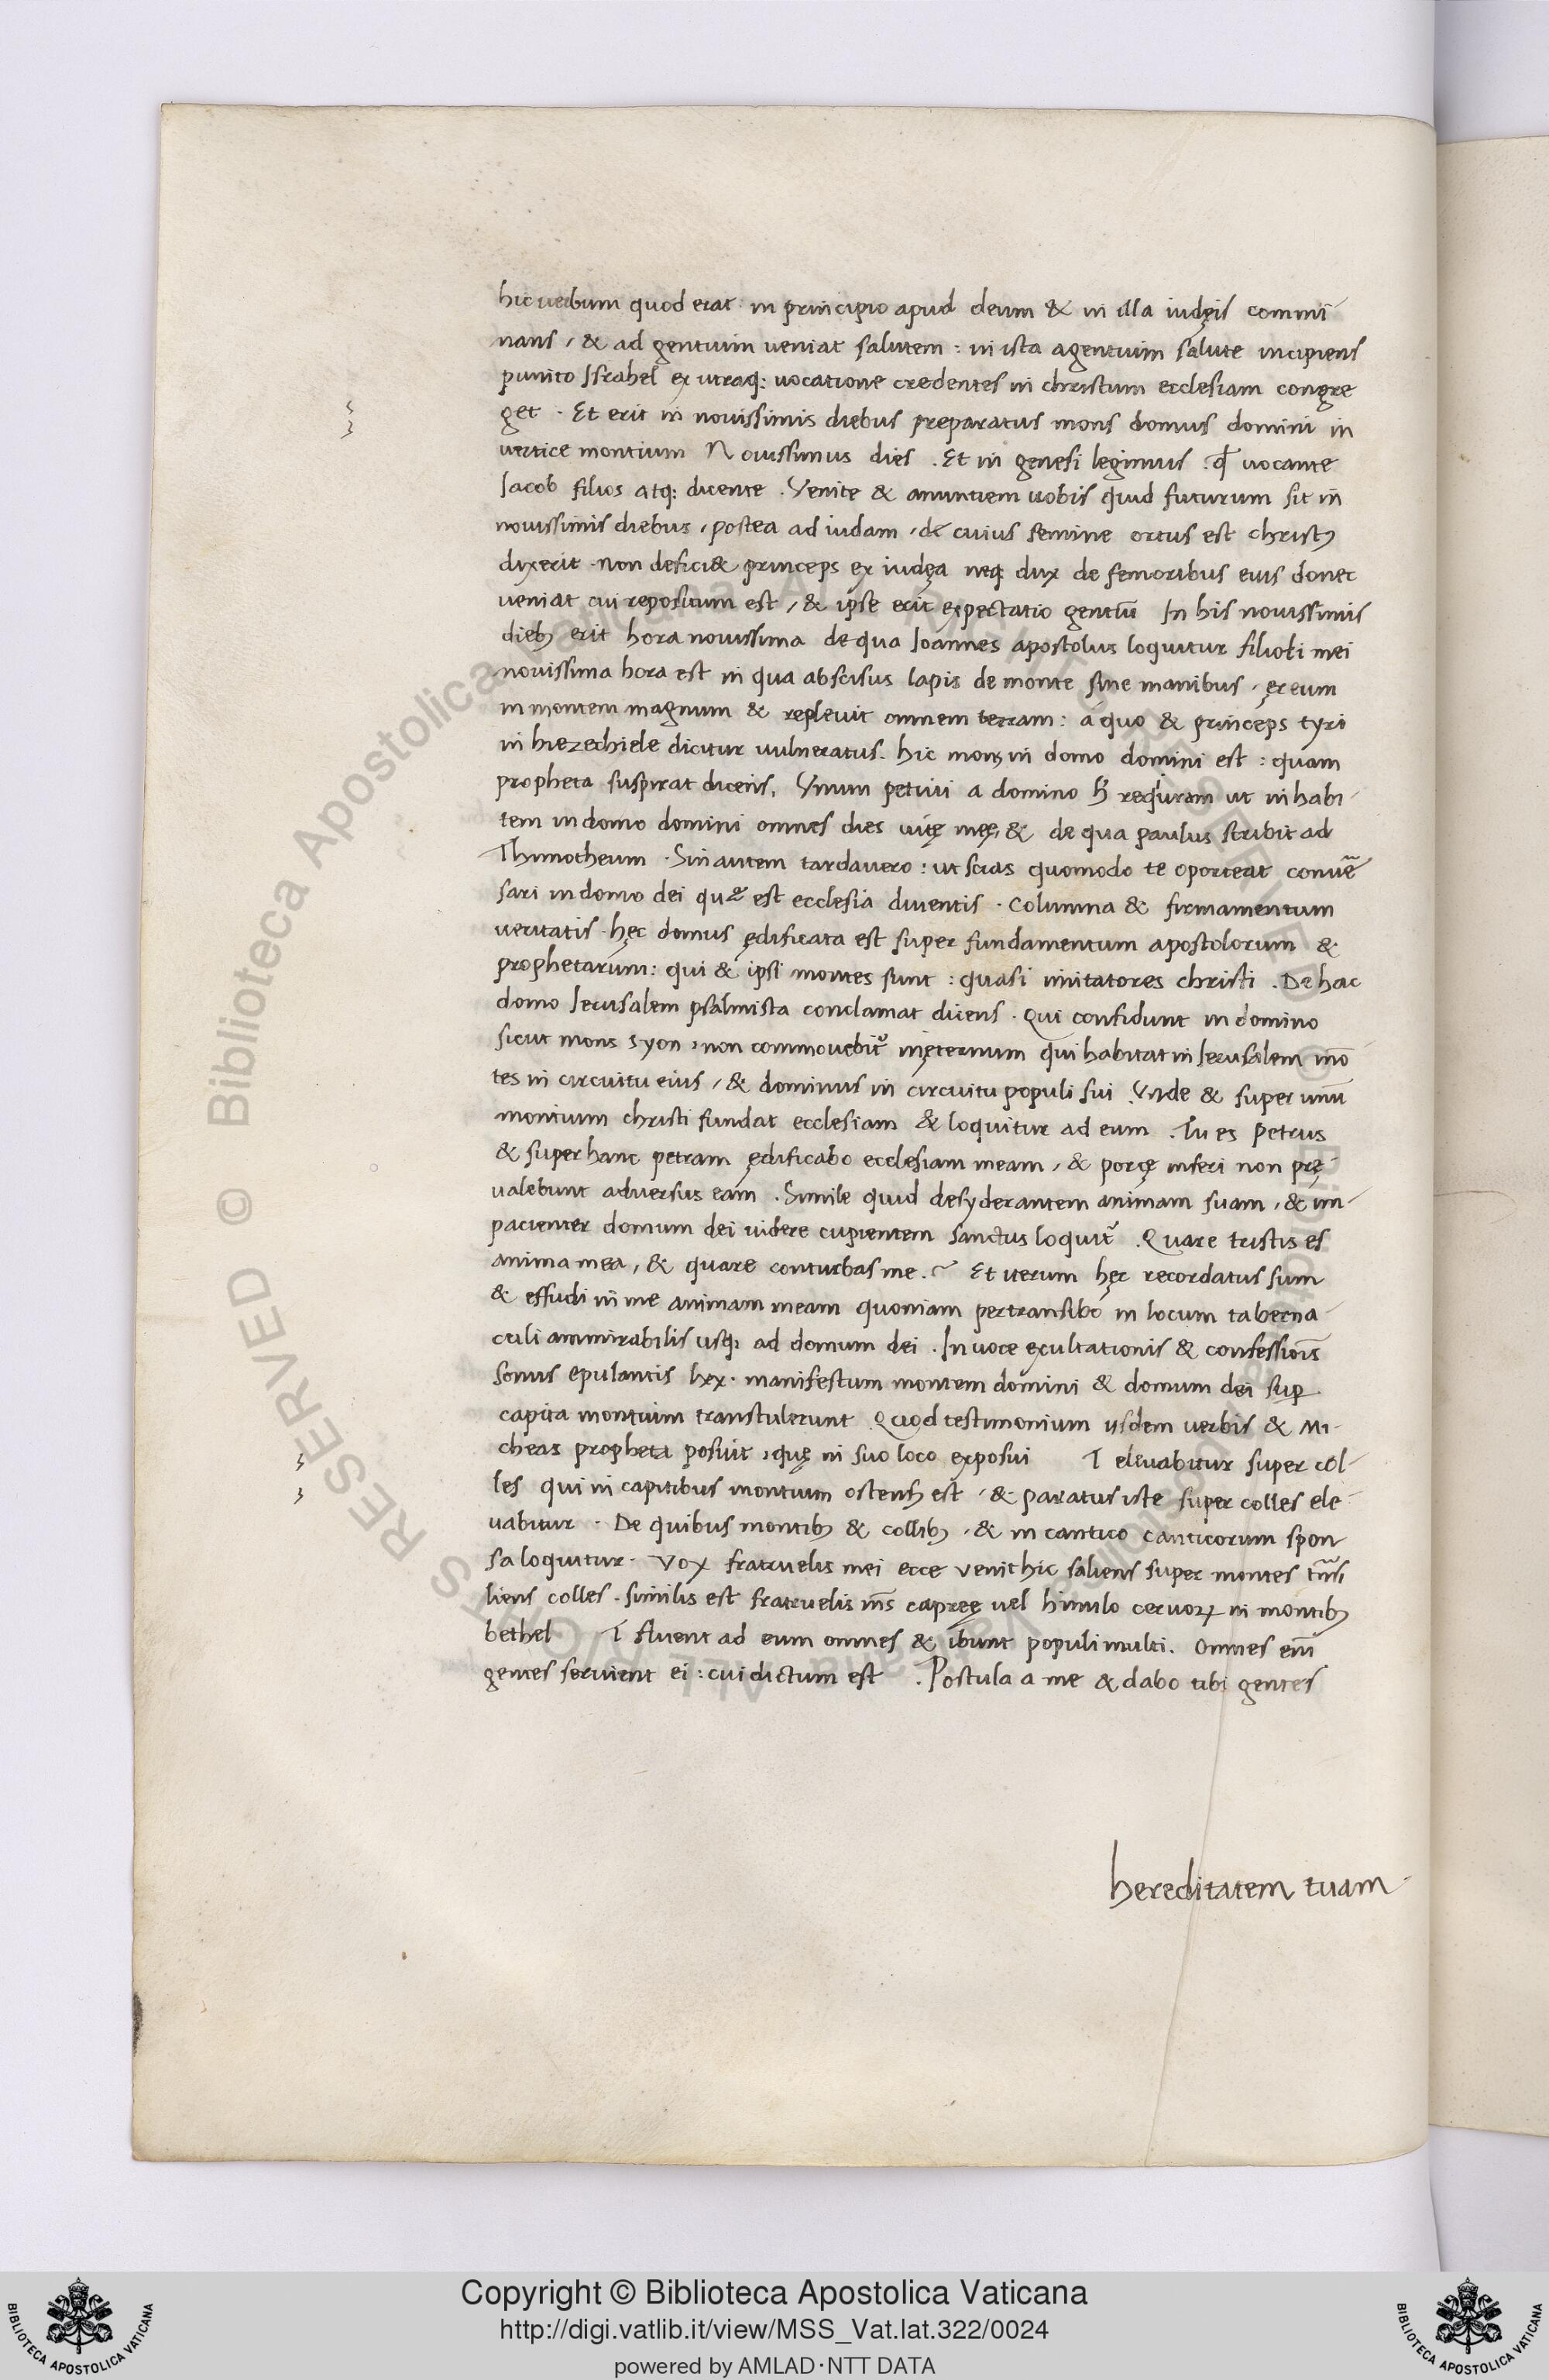 hic uerbum quod erat in principio apud deum & in illa iudęis commi
nans, & ad gentium ueniat salutem: in ista agentium salute incipiens
punito Israhel ex utraq: uocatione credentes in christum ecclesiam congre
get. Et erit in nouissimis diebus preparatus mons domus domini in
uertice montium Nouissimus dies. Et in genesi legimus. qđ uocante
Iacob filios atq: dicente. Venite & anuntiem uobis quid futurum sit in
nouissimis diebus, postea ad iudam, de cuius semine ortus est christꝰ
dixerit. non defici& princeps ex iudęa neq: dux de femoribus eius donec
ueniat cui repositum est, & ipse erit expectatio gentiū In his nouissimis
diebꝫ erit hora nouissima de qua Ioannes apostolus loquitur filioli mei
nouissima hora est in qua abscisus lapis de monte sine manibus, ereum
in montem magnum & repleuit omnem terram: a quo & princeps tyri
in hiezechiele dicitur uulneratus. hic mons in domo domini est: quam
propheta suspirat dicens. Vnum petiui a domino requiram ut inhabi-
tem in domo domini omnes dies uitę meę, & de qua paulus scribit ad
Thimotheum. Sin autem tardauero: ut scias quomodo te oporteat conuē
sari in domo dei quæ est ecclesia uiuentis. columna & firmamentum
ueritatis. hęc domus ędificata est super fundamentum apostolorum &
prophetarum: qui & ipsi montes sunt: quasi imitatores christi. De hac
domo Ierusalem psalmista conclamat dicens. Qui confidunt in domino
sicut mons syon, non commouebit᷑ inęternum qui habitat in Ierusalem mō
tes in circuitu eius, & dominus in circuitu populi sui. Vnde & super unū
montium christi fundat ecclesiam & loquitur ad eum. Tu es Petrus
& super hanc petram ędificabo ecclesiam meam, & portę inferi non prę-
ualebunt aduersus eam. Simile quid desyderantem animam suam, & im-
pacienter domum dei uidere cupientem sanctus loquit᷑. Quare tristis es
anima mea, & quare conturbas me. Et iterum hęc recordatus sum
& effudi in me animam meam quoniam pertransibo in locum taberna-
culi ammirabilis usq; ad domum dei. In uoce exultationis & confessiōis
sonus epulantis lxx. manifestum montem domini & domum dei sup̱
capita montium transtulerunt Quod testimonium iisdem uerbis & Mi-
cheas propheta posuit, quę in suo loco exposui T eleuabitur super col-
les qui in capitibus montium est, & paratus iste super colles ele-
uabitur. De quibus montibꝫ & collibꝫ, & in cantico canticorum spon
sa loquitur. Vox fratruelis mei ecce uenit hic saliens super montes
liens colles. similis est fratruelis mꝭ capreę uel hinulo ceruoꝝ in montibꝫ
bethel T fluent ad eum omnes & ibunt populi multi. Omnes eni͂
gentes seruient ei: cui dictum est. Postula a me & dabo tibi gentes
hereditatem tuam
Copyright © Biblioteca Apostolica Vaticana
http://digi.vatlib.it/view/MSS_Vat.lat.322/0024
powered by AMLAD·NTT DATA